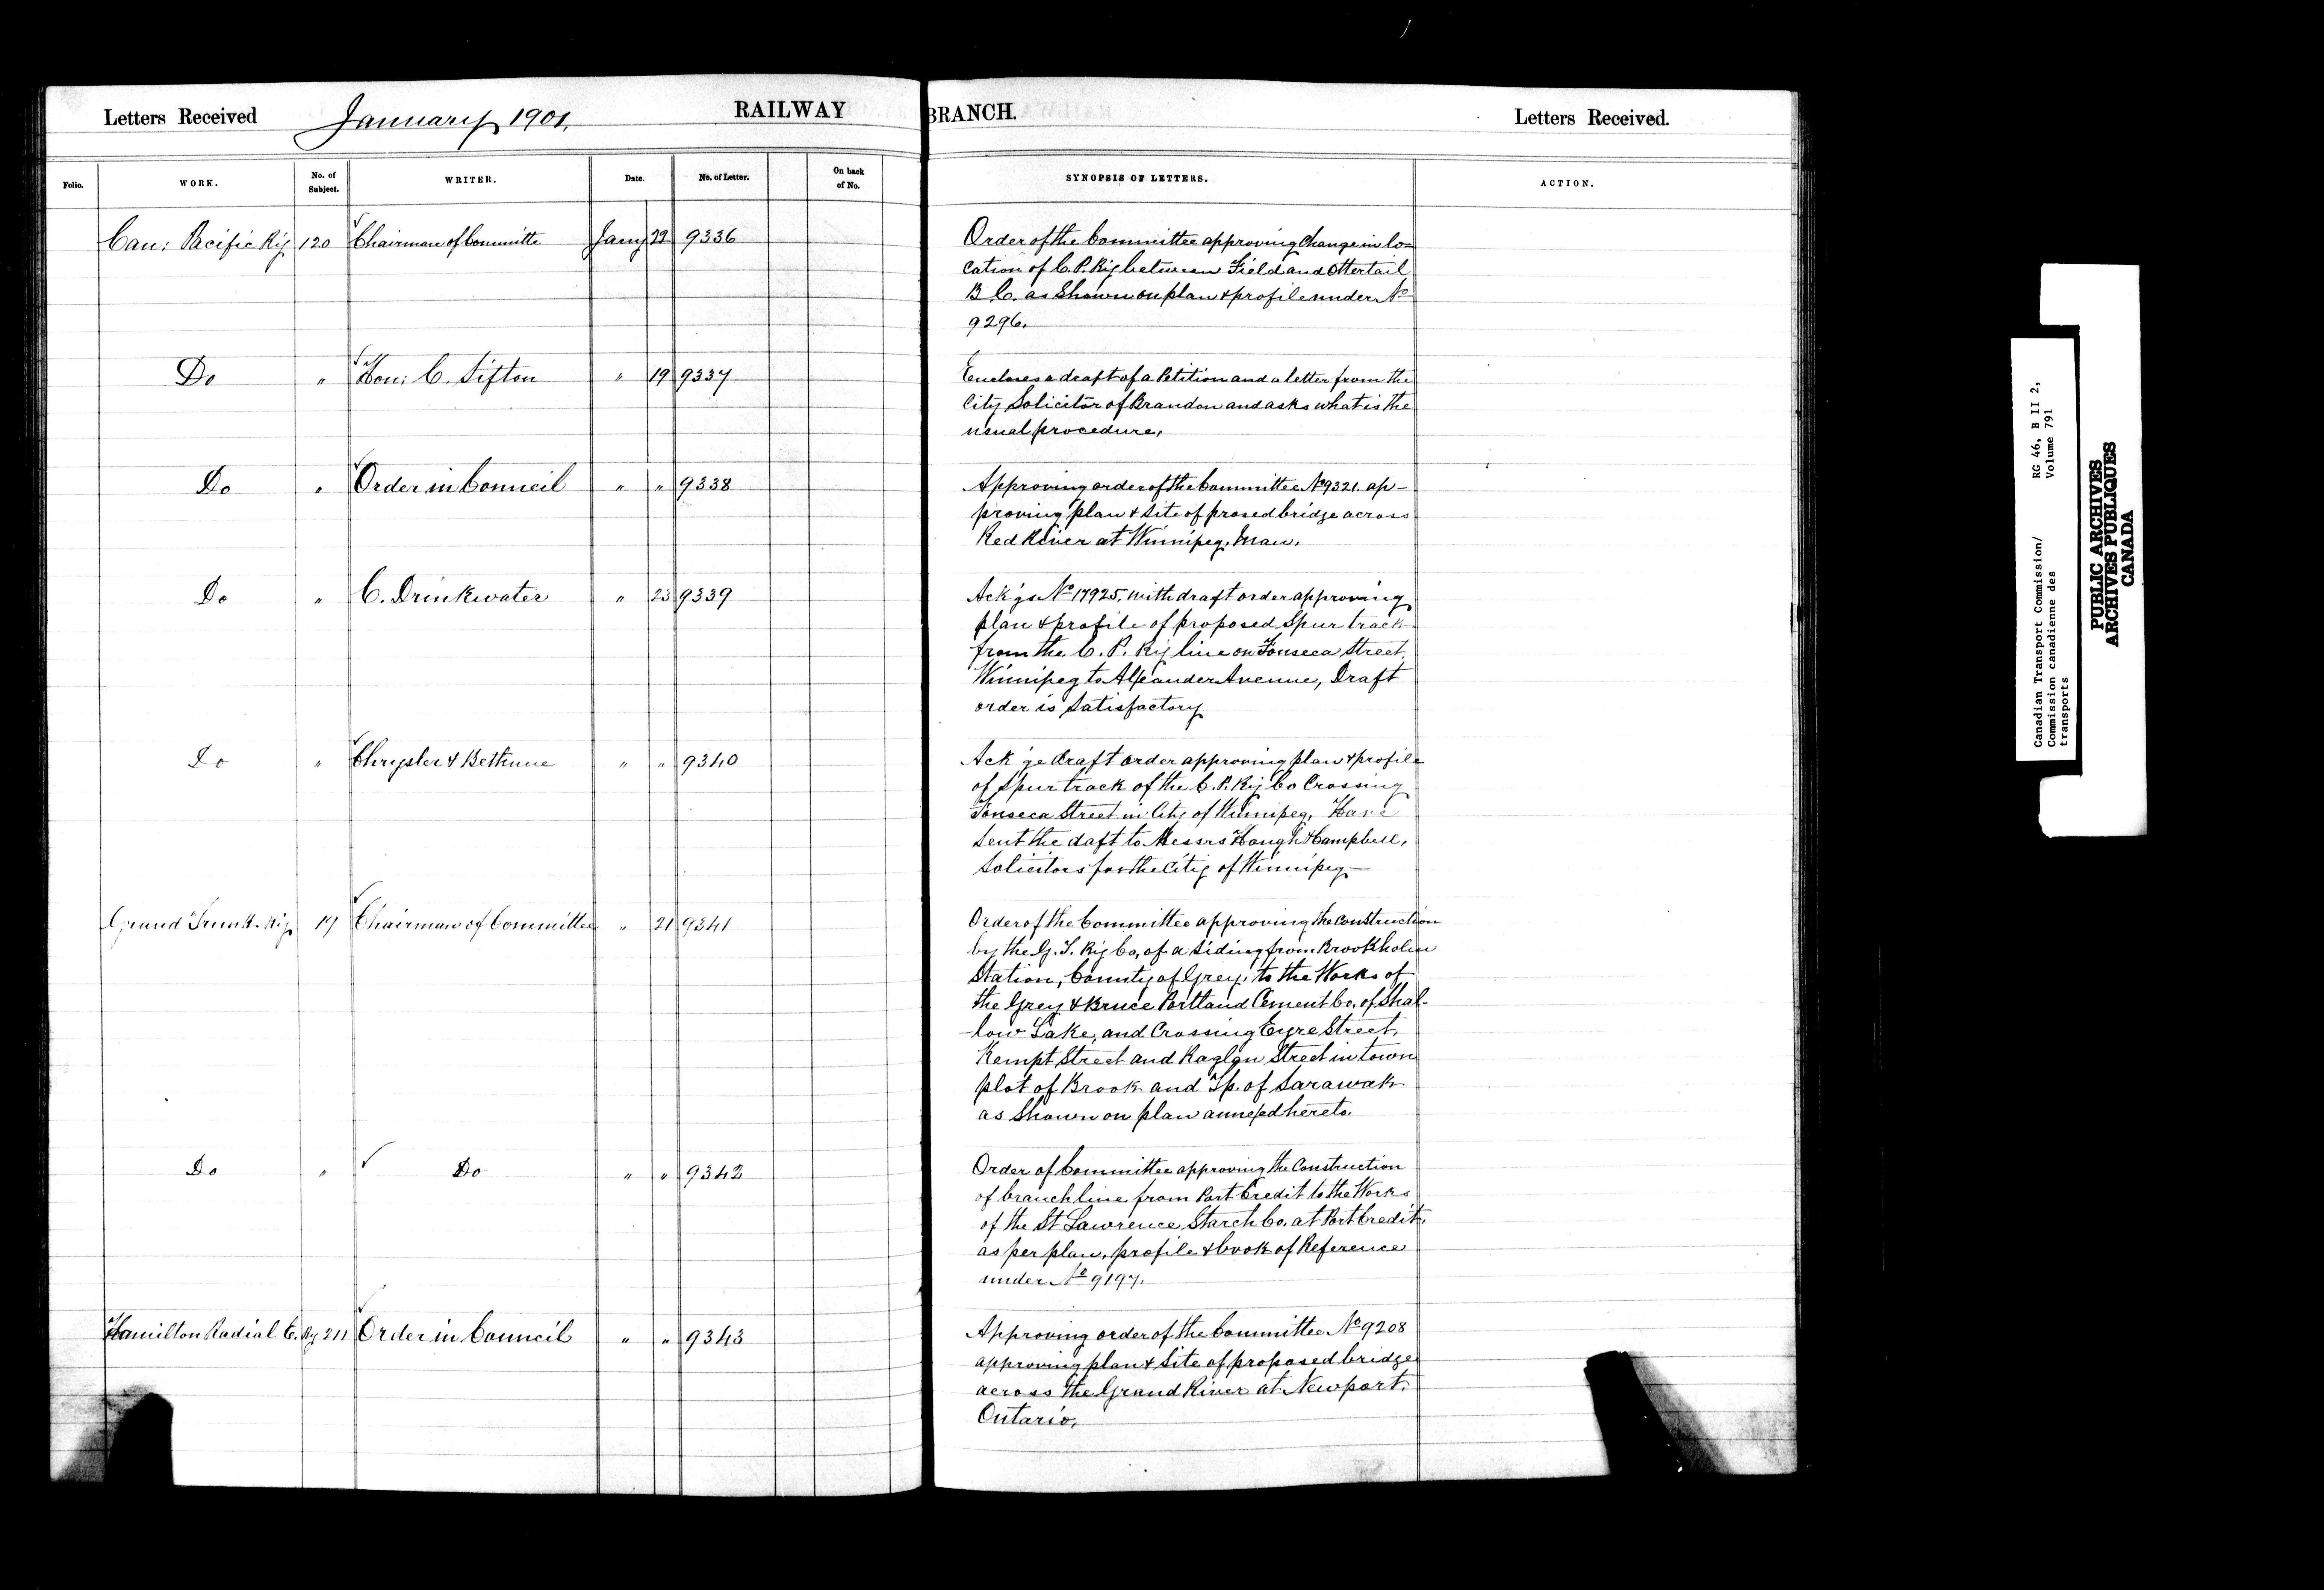 Letters Received January 1901. RAILWAY BRANCH. Letters Received.
Folio. WORK. No. of Subject. WRITER. Date. No. of Letter. On back of No. SYNOPSIS OF LETTERS. ACTION.
Can: Pacific Ry 120 Chairman of Committe Jany 22 9336 Order of the Committee approving Change in lo-
cation of C. P. Ry between Field and Ottertail
B. C. as Shown on plan & profile under No
9296.
Do " Hon: C. Sifton " 19 9337 Encloses a draft of a Petition and a letter from the
City Solicitor of Brandon and asks what is the
usual procedure,
Do " Order in Council " " 9338 Approving order of the Committee No 9321. ap-
proving plan & Site of prosed bridge across
Red River at Winnipeg, Man.
Do " C. Drinkwater " 23 9339 Ack'gs No 17925, with draft order approving
plan & profile of proposed Spur track
from the C. P. Ry line on Fonseca Street,
Winnipeg to Alexander Avenue, Draft
order is Satisfactory
Do " Chrysler & Bethune " " 9340 Ack'ge draft order approving plan & profile
of Spur track of the C. P. Ry Co Crossing
Fonseca Street in City of Winnipeg, Have
sent the daft to Messrs Hough & Campbell,
Solicitors for the City of Winnipeg—
Grand Trunk Ry 19 Chairman of Committee " 21 9341 Order of the Committee approving the Construction
by the G. T. Ry Co, of a Siding from Brookholm
Station, County of Grey, to the Works of
the Grey & Bruce Portland Cement Co. of Shal-
-low Lake, and Crossing Eyre Street,
Kempt Street and Raglan Street in town
plot of Brook and Tp. of Sarawak
as Shown on plan annexed hereto.
Do " Do " " 9342 Order of Committee approving the Construction
of branch line from Port Credit to the Works
of the St Lawrence Starch Co, at Port Credit,
as per plan, profile & book of Reference
under No 9197.
Hamilton Radial E. Ry 211 Order in Council " " 9343 Approving order of the Committee No 9208
approving plan & Site of proposed bridge
across the Grand River at Newport,
Ontario,
Canadian Transport Commission/ RG 46, B II 2,
Commission canadienne des Volume 791
transports
PUBLIC ARCHIVES
ARCHIVES PUBLIQUES
CANADA